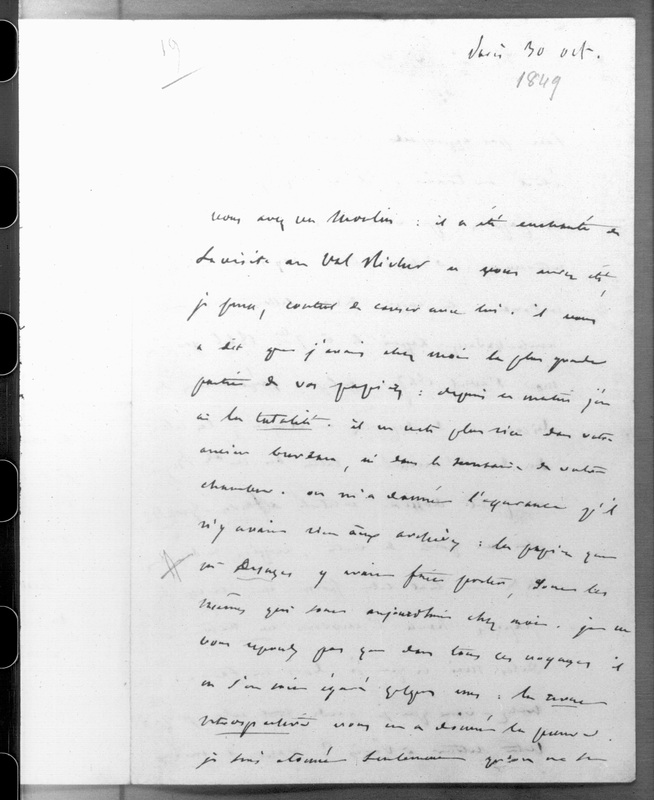 19
Paris 30 oct.
1849
vous avez vu Moulin : il a été enchanté de
sa visite au Val Richer et vous avez été,
je pense, content de causer avec lui. il vous
a dit que j'avais chez moi la plus grande
partie de vos papiers : depuis ce matin j'en
ai la totalité. il ne reste plus rien dans votre
ancien bureau, ni dans le de votre
chambre. on m'a donné l'assurance qu'il
n'y avait rien aux archives : les papiers que
Desages y avait fait porter, sont les
mêmes qui sont aujourd'hui chez moi. je ne
vous réponds pas que dans tous ces voyages il
ne s'en soit égaré quelques uns : la revue
rétrospective nous en a donné la preuve.
je suis étonné seulement qu'on n'en